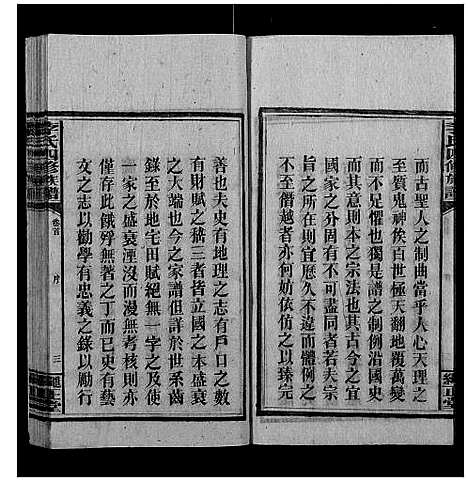 李氏四修族譜
而古聖人之制曲當乎人心天理之
至質鬼神俟百世極天翻地覆萬變
而不見懼也獨是譜之制例沿國史
而其意則本之宗法也其古今之宜
國家之外固有不可同者若夫宗
旨之所在則宜歷久不違而體例之
不至僭越者亦何妨依仿之以臻完
善也夫史有地理之志有戶口之數
有財賦之稽三者皆立國之本盛衰
之大端也今之家譜但詳於世系齒
錄至於地宅田賦絕無一字之及使
一家之盛衰湮沒而漫無考核則亦
僅存此餓殍無著之丁而已史有藝
文之志以勸學有忠義之錄以勵行
李氏四修族譜
卷首
序
三